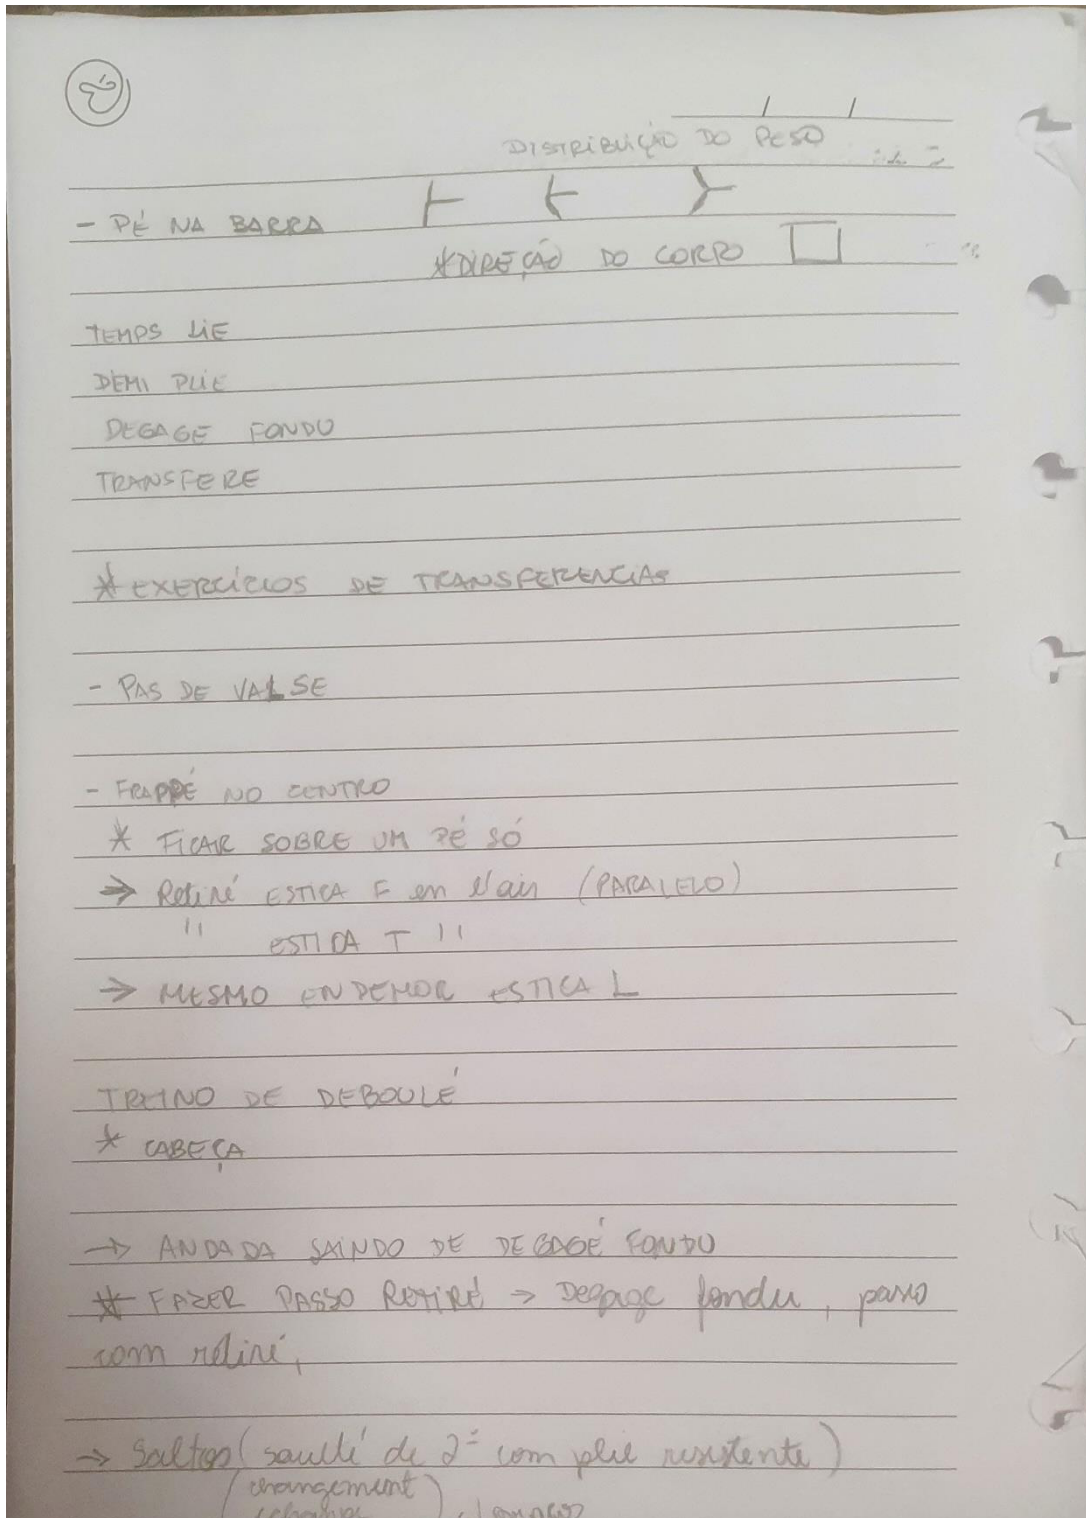 DISTRIBUIÇÃO DO PESO
- PÉ NA BARRA
* DIREÇÃO DO CORPO
TEMPS LIE
DEMI PLIE
DEGAGE FONDU
TRANSFERE
* EXERCÍCIOS DE TRANSFERENCIAS
- PAS DE VALSE
- FRAPPÉ NO CENTRO
* FICAR SOBRE UM PÉ SÓ
→ Retiré ESTICA F en l'air (PARALELO)
" ESTICA T "
→ MESMO ENDEHOR ESTICA L
TREINO DE DEBOULÉ
* CABEÇA
→ ANDADA SAINDO DE DEGAGÉ FONDU
* FAZER PASSO RETIRÉ → Degage fondu, passo
com retiré,
→ Saltos (saulté de 2ª com plie resistente)
(changement)